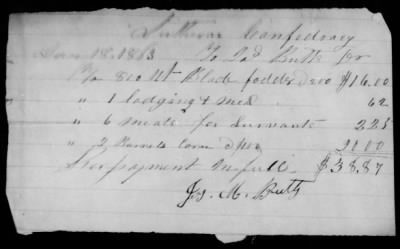 Suthern Confedracy
Jan 18, 1863 To Butts Dr
To 800 Blade fodder 2.00 $16.00
" 1 lodging & meal 62
" 6 meals for survants 2 25
" 2 Barrels Corn 20.00
payment in full. $38.87
Js. M. Butts